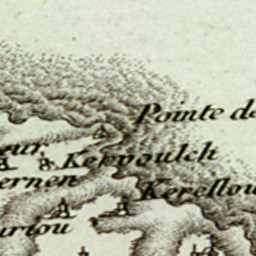 Pointe de
eur
Kervoulch
ernen
Kerellou
uriou